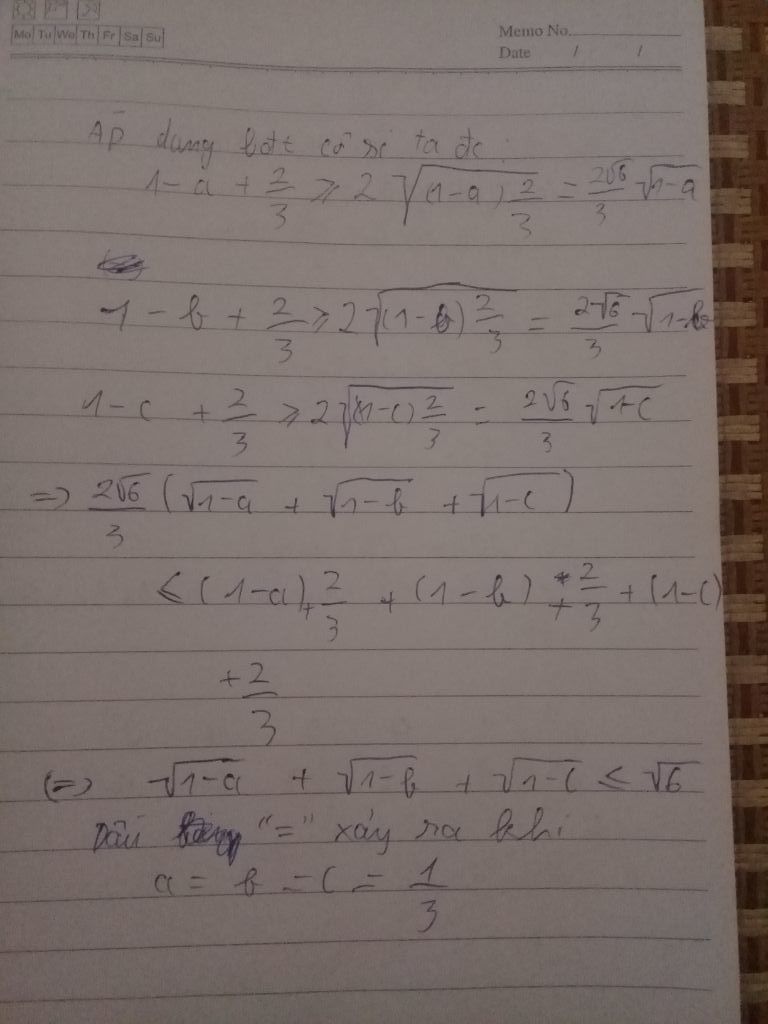 Mo Tu We Th Fr Sa Su
Memo No.
Date / /
Áp dụng bđt cô si ta đc :
1 - a + 2/3 ≥ 2 √((1-a) 2/3) = 2√6/3 √(1-a)
1 - b + 2/3 ≥ 2 √((1-b) 2/3) = 2√6/3 √(1-b)
1 - c + 2/3 ≥ 2 √((1-c) 2/3) = 2√6/3 √(1-c)
=> 2√6/3 (√(1-a) + √(1-b) + √(1-c))
≤ (1-a) + 2/3 + (1-b) + 2/3 + (1-c)
+ 2/3
(=) √(1-a) + √(1-b) + √(1-c) ≤ √6
Dấu "=" xảy ra khi
a = b = c = 1/3